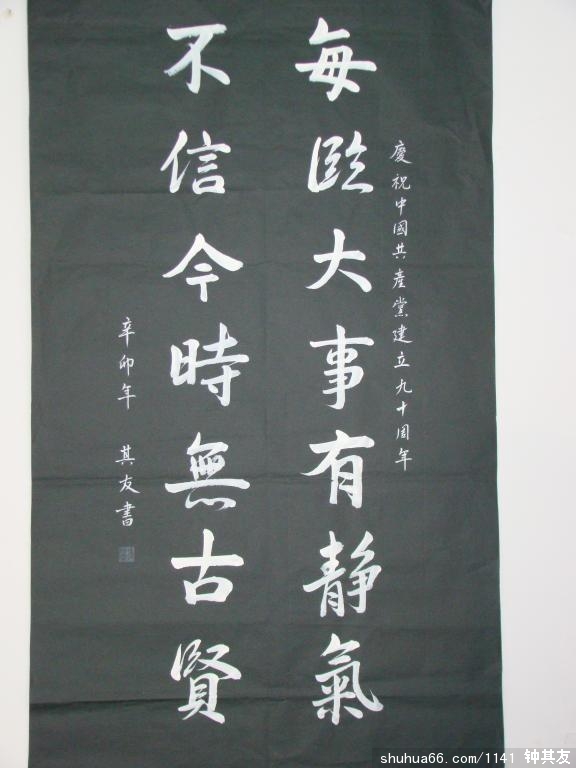 慶祝中國共產黨建立九十周年
每臨大事有静氣
不信今時無古賢
辛卯年 其友書
shuhua66.com/1141 钟其友